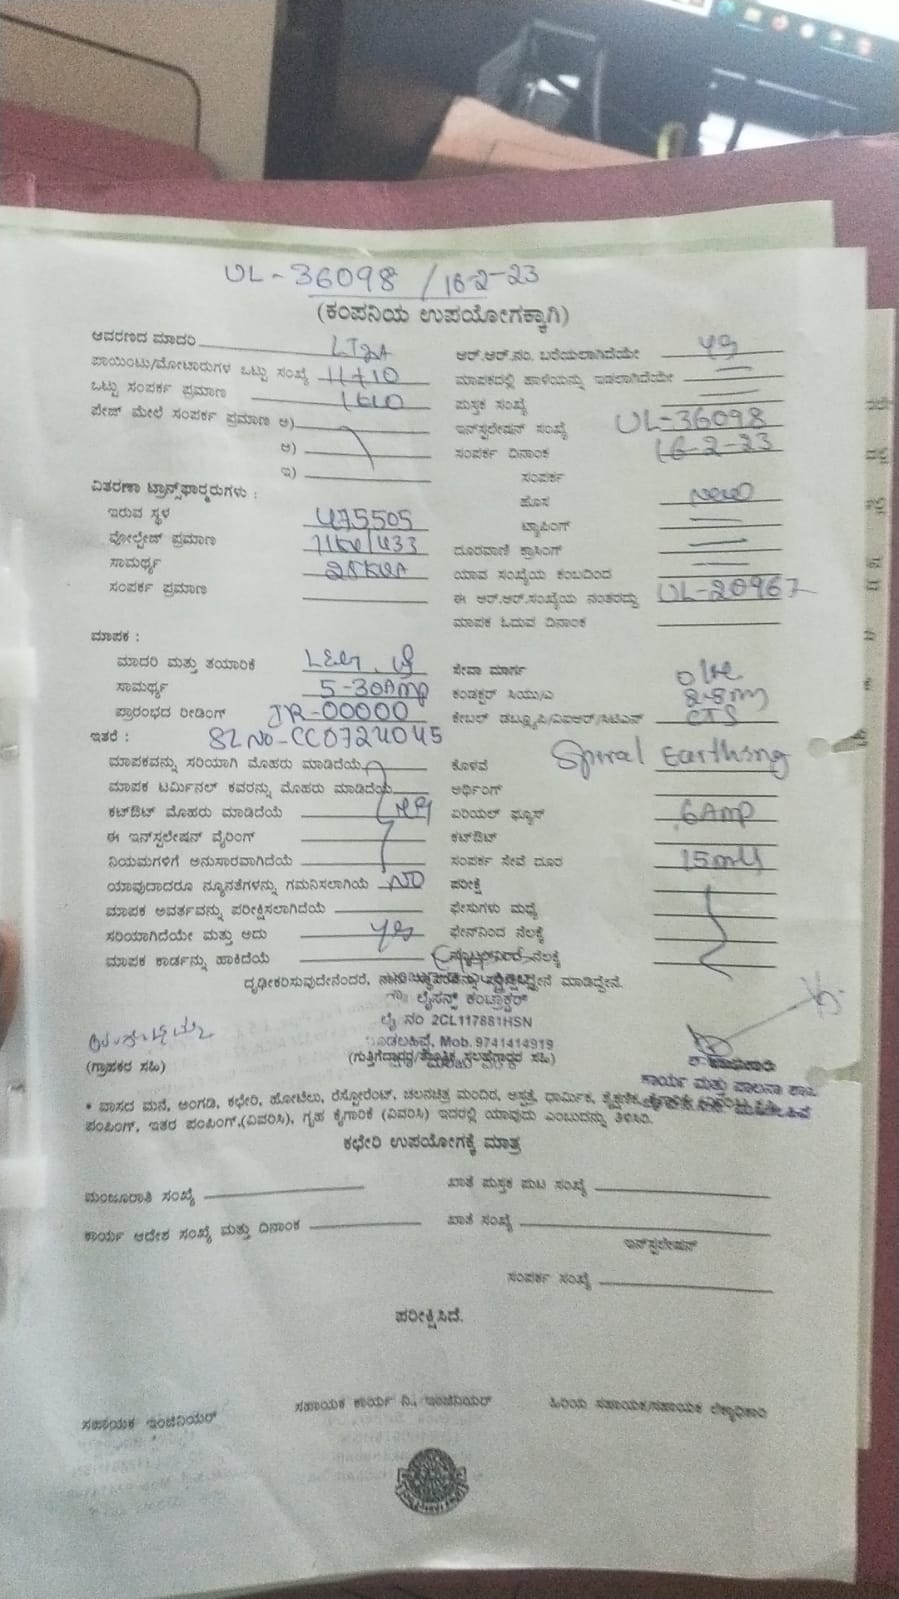 UL-36098 / 16-2-23
(ಕಂಪನಿಯ ಉಪಯೋಗಕ್ಕಾಗಿ)
ಆವರಣದ ಮಾದರಿ LT2A
ಪಾಯಿಂಟು/ಮೋಟಾರುಗಳ ಒಟ್ಟು ಸಂಖ್ಯೆ
ಒಟ್ಟು ಸಂಪರ್ಕ ಪ್ರಮಾಣ
ಪೇಜ್ ಮೇಲೆ ಸಂಪರ್ಕ ಪ್ರಮಾಣ ಅ)
ಆ)
ಇ)
ವಿತರಣಾ ಟ್ರಾನ್ಸ್‌ಫಾರ್ಮರುಗಳು :
ಇರುವ ಸ್ಥಳ 475505
ವೋಲ್ಟೇಜ್ ಪ್ರಮಾಣ 11KV/433
ಸಾಮರ್ಥ್ಯ 25KVA
ಸಂಪರ್ಕ ಪ್ರಮಾಣ
ಮಾಪಕ :
ಮಾದರಿ ಮತ್ತು ತಯಾರಿಕೆ
ಸಾಮರ್ಥ್ಯ 5-30Amp
ಪ್ರಾರಂಭದ ರೀಡಿಂಗ್ JR-00000
ಇತರೆ : SL NO-CC0724045
ಮಾಪಕವನ್ನು ಸರಿಯಾಗಿ ಮೊಹರು ಮಾಡಿದೆಯೆ
ಮಾಪಕ ಟರ್ಮಿನಲ್ ಕವರನ್ನು ಮೊಹರು ಮಾಡಿದೆಯೆ
ಕಟ್‌ಔಟ್ ಮೊಹರು ಮಾಡಿದೆಯೆ
ಈ ಇನ್‌ಸ್ಟಲೇಷನ್ ವೈರಿಂಗ್
ನಿಯಮಗಳಿಗೆ ಅನುಸಾರವಾಗಿದೆಯೆ
ಯಾವುದಾದರೂ ನ್ಯೂನತೆಗಳನ್ನು ಗಮನಿಸಲಾಗಿಯೆ NO
ಮಾಪಕ ಅವರ್ತವನ್ನು ಪರೀಕ್ಷಿಸಲಾಗಿದೆಯೆ
ಸರಿಯಾಗಿದೆಯೇ ಮತ್ತು ಅದು yes
ಮಾಪಕ ಕಾರ್ಡನ್ನು ಹಾಕಿದೆಯೆ
ಆರ್.ಆರ್.ನಂ. ಬರೆಯಲಾಗಿದೆಯೇ yes
ಮಾಪಕದಲ್ಲಿ ಹಾಳೆಯನ್ನು ಇಡಲಾಗಿದೆಯೇ
ಪುಸ್ತಕ ಸಂಖ್ಯೆ
ಇನ್‌ಸ್ಟಲೇಷನ್ ಸಂಖ್ಯೆ UL-36098
ಸಂಪರ್ಕ ದಿನಾಂಕ 16-2-23
ಸಂಪರ್ಕ
ಹೊಸ New
ಟ್ಯಾಪಿಂಗ್
ದೂರವಾಣಿ ಕ್ರಾಸಿಂಗ್
ಯಾವ ಸಂಖ್ಯೆಯ ಕಂಬದಿಂದ
ಈ ಆರ್.ಆರ್.ಸಂಖ್ಯೆಯ ನಂತರದ್ದು UL-20967
ಮಾಪಕ ಓದುವ ದಿನಾಂಕ
ಸೇವಾ ಮಾರ್ಗ
ಕಂಡಕ್ಟರ್ ಸಿಯು/ಎ
ಕೇಬಲ್ ಡಬ್ಲ್ಯೂಪಿ/ವಿಐಆರ್/ಸಿಟಿಎಸ್ CTS
ಕೊಳವೆ Spiral Earthing
ಅರ್ಥಿಂಗ್
ಏರಿಯಲ್ ಫ್ಯೂಸ್ 6Amp
ಕಟ್‌ಔಟ್
ಸಂಪರ್ಕ ಸೇವೆ ದೂರ
ಪರೀಕ್ಷೆ
ಫೇಸುಗಳು ಮಧ್ಯೆ
ಫೇಸ್‌ನಿಂದ ನೆಲಕ್ಕೆ
ನ್ಯೂಟ್ರಲ್‌ನಿಂದ ನೆಲಕ್ಕೆ
ದೃಢೀಕರಿಸುವುದೇನೆಂದರೆ, ನಾನು ಮಾಡಿದ್ದೇನೆ.
ಲೈಸನ್ಸ್ ಕಂಟ್ರಾಕ್ಟರ್
ಲೈ ನಂ 2CL117881HSN
Mob. 9741414919
(ಗ್ರಾಹಕರ ಸಹಿ)
(ಗುತ್ತಿಗೆದಾರರ/ತಾಂತ್ರಿಕ ಸಲಹೆಗಾರರ ಸಹಿ)
ಕಾರ್ಯ ಮತ್ತು ಪಾಲನಾ ಶಾಖೆ
* ವಾಸದ ಮನೆ, ಅಂಗಡಿ, ಕಛೇರಿ, ಹೋಟೆಲು, ರೆಸ್ಟೋರೆಂಟ್, ಚಲನಚಿತ್ರ ಮಂದಿರ, ಆಸ್ಪತ್ರೆ, ಧಾರ್ಮಿಕ, ಶೈಕ್ಷಣಿಕ,
ಪಂಪಿಂಗ್, ಇತರ ಪಂಪಿಂಗ್,(ವಿವರಿಸಿ), ಗೃಹ ಕೈಗಾರಿಕೆ (ವಿವರಿಸಿ) ಇದರಲ್ಲಿ ಯಾವುದು ಎಂಬುದನ್ನು ತಿಳಿಸಿರಿ.
ಕಛೇರಿ ಉಪಯೋಗಕ್ಕೆ ಮಾತ್ರ
ಮಂಜೂರಾತಿ ಸಂಖ್ಯೆ
ಖಾತೆ ಪುಸ್ತಕ ಪುಟ ಸಂಖ್ಯೆ
ಕಾರ್ಯ ಆದೇಶ ಸಂಖ್ಯೆ ಮತ್ತು ದಿನಾಂಕ
ಖಾತೆ ಸಂಖ್ಯೆ
ಇನ್‌ಸ್ಟಲೇಷನ್
ಸಂಪರ್ಕ ಸಂಖ್ಯೆ
ಪರೀಕ್ಷಿಸಿದೆ.
ಸಹಾಯಕ ಇಂಜಿನಿಯರ್
ಸಹಾಯಕ ಕಾರ್ಯ ನಿ., ಇಂಜಿನಿಯರ್
ಹಿರಿಯ ಸಹಾಯಕ/ಸಹಾಯಕ ಲೆಕ್ಕಾಧಿಕಾರಿ